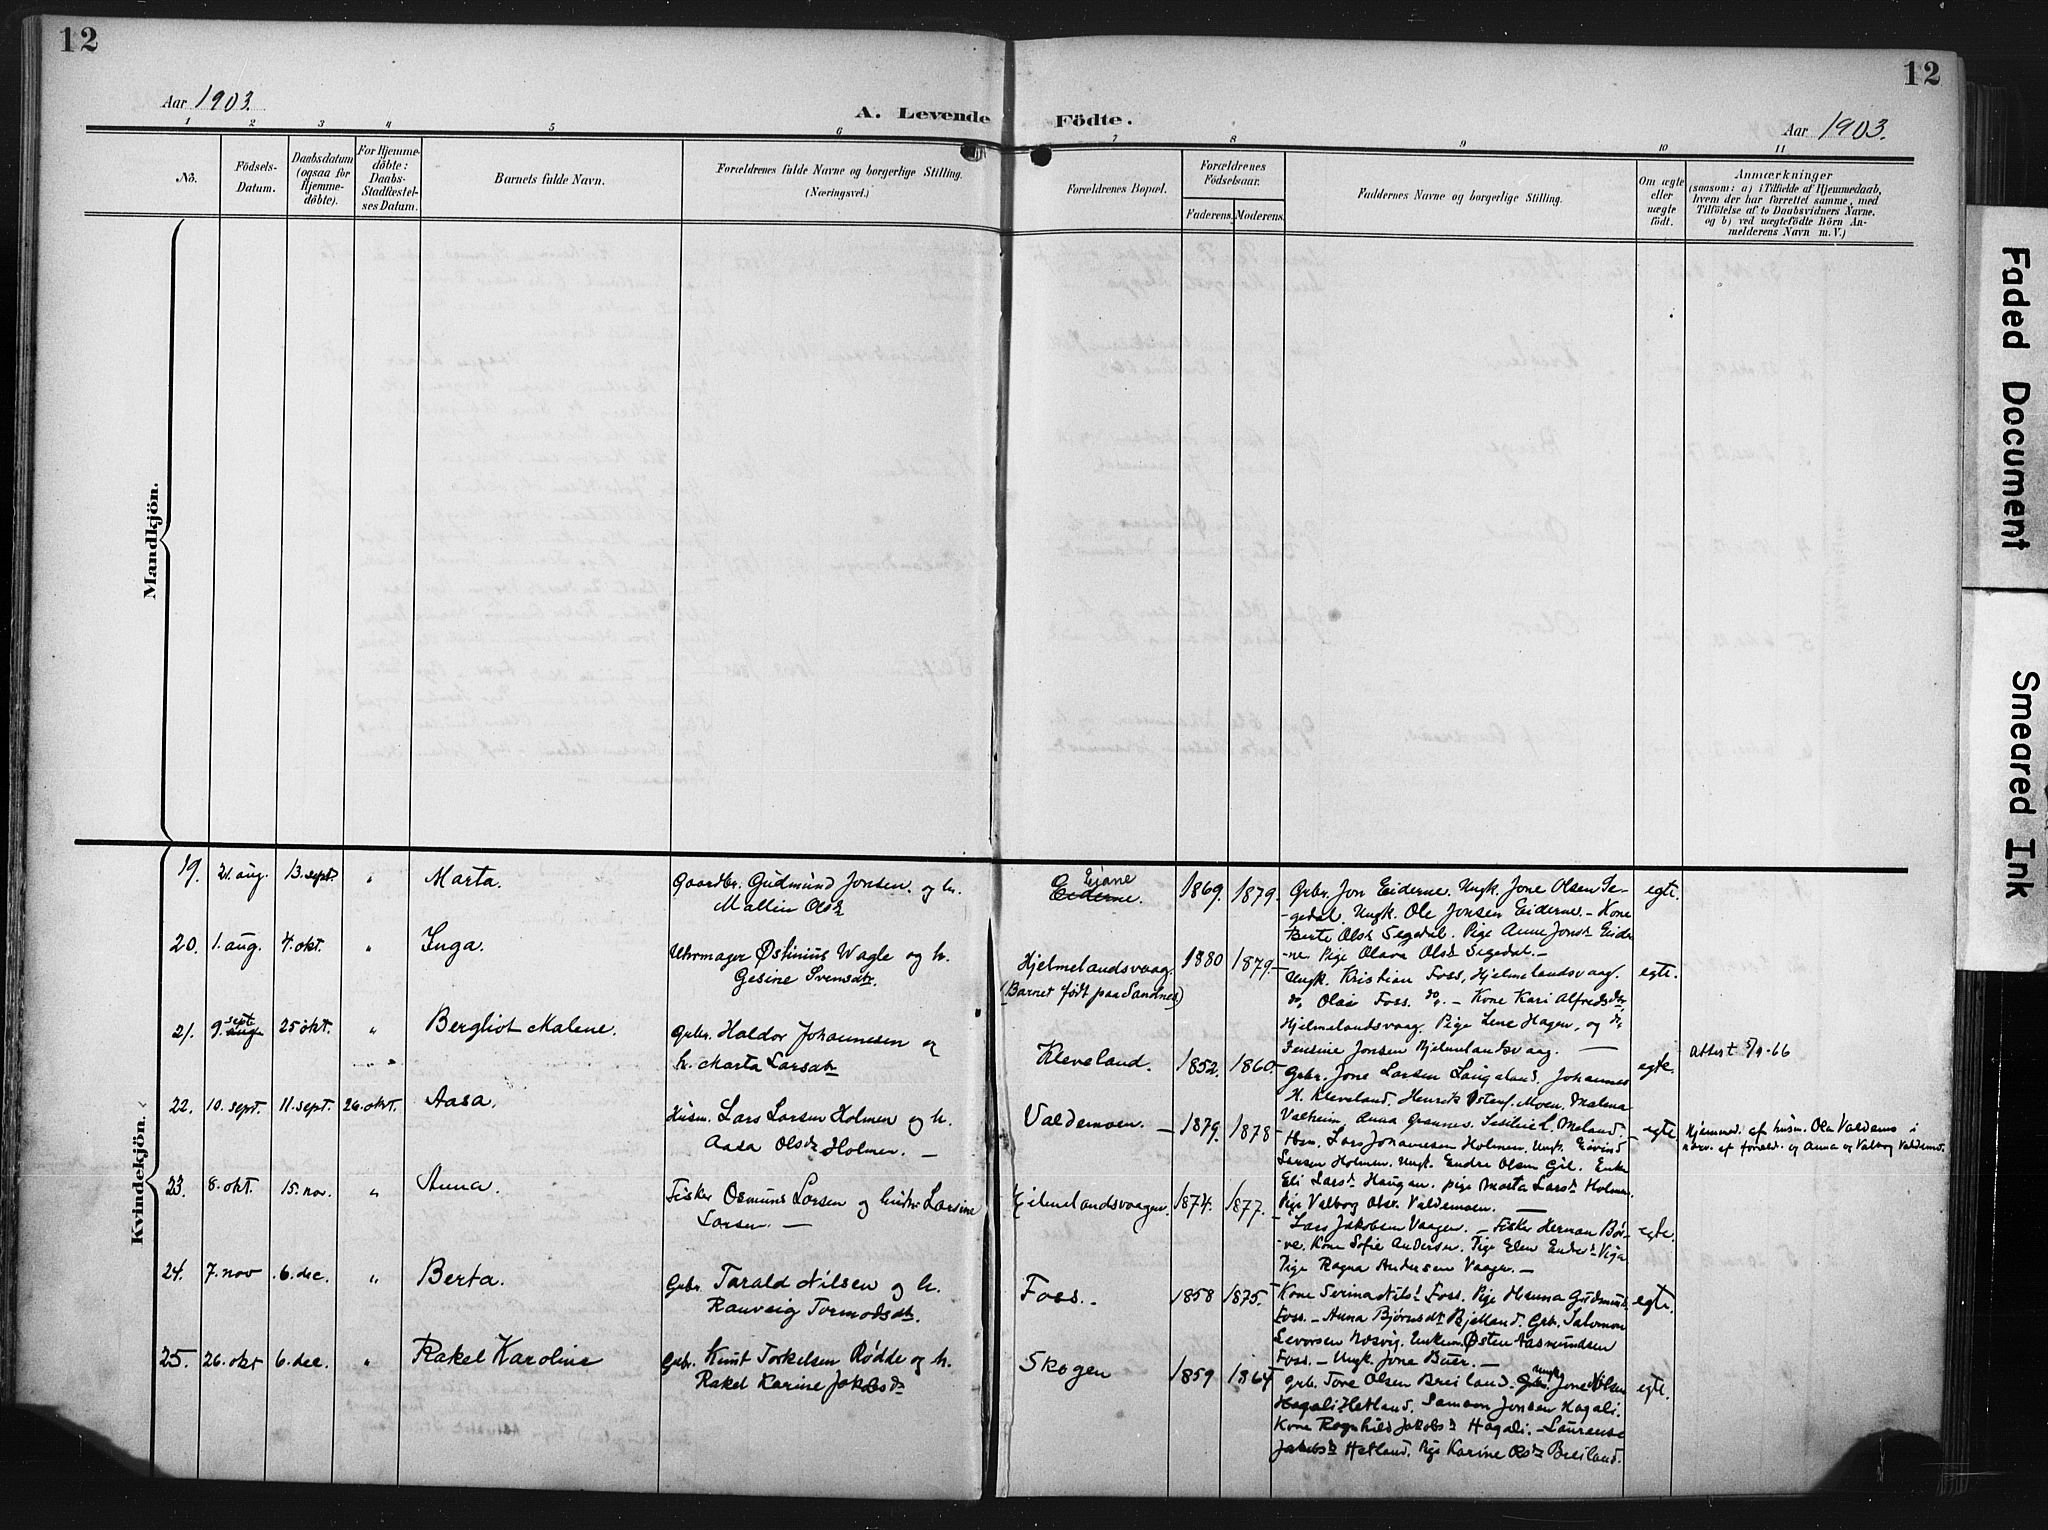 12
12
Aar 1903.
A. Levende Födte.
Aar 1903.
1 2 3 4 5 6 7 8 9 10 11
No.
Födsels-
Datum.
Daabsdatum
(ogsaa for
Hjemme-
döbte).
For Hjemme-
döbte:
Daabs-
Stadfæstel-
ses Datum.
Barnets fulde Navn.
Forældrenes fulde Navne og borgerlige Stilling.
(Næringsvei.)
Forældrenes Bopæl.
Forældrenes
Födselsaar.
Faderens. Moderens.
Faddernes Navne og borgerlige Stilling.
Om ægte
eller
uægte
födt.
Anmærkninger
(saasom: a) i Tilfælde af Hjemmedaab,
hvem der har forrettet samme, med
Tilföielse af to Daabsvidners Navne,
og b) ved uægtefödte Börn An-
melderens Navn m. V.)
Mandkjön.
Kvindekjön.
19. 21. aug. 13. sept. " Marta.
Gaardbr. Gudmund Jonsen. og h.
Mallin Olsdr
Eiane
Eiderne.
1869. 1879.
Grbr. Jon Eiderne. Ungk. Jone Olsen Se-
gedal. Ungk. Ole Jonsen Eiderne. - Kone
Berte Olsdr Segedal. Pige Anne Jonsdr Eider
ne. Pige Olava Olsdr Segedal. -
egte.
20. 1. aug. 4. okt. " Inga.
Uhrmager Østinius Wagle og h.
Gesine Svensdtr.
Hjelmelandsvaag.
(Barnet født paa Sandnes)
1880 1879
Ungk. Kristian Foss, Hjelmelandsvaag.
do. Olai Foss. do. - Kone Kari Alfredsdtr
Hjelmelandsvaag. Pige Lene Hagen, og do.
Jensine Jonsen Hjelmelandsvaag. -
egte.
21. 9. sept. aug 25 okt. " Bergliot Malene.
Grbr. Haldor Johannesen og
h. Marta Larsdtr
Kleveland.
1852. 1860.
Grbr. Jone Larsen Langeland. Johannes
H. Kleveland. Henrik Østenf. Moen. Malena
Valheim, Anna Grannes.
egte.
Attest 5/9-66
22. 10. sept. 11. sept. 26. okt. Aasa.
Husm. Lars Larsen Holmen og h.
Aasa Olsdr Holmen. -
Valdemoen. -
1879. 1878
Hsm. Lars Johannesen Holmen. Ungk. Eivind
Larsen Holmen. Ungk. Endre Olsen Gil. Enke
Eli Larsdr Haugen. Pige Marta Larsdr Holmen.
Pige Valborg Olsdr. Valdemoen. -
egte
Hjemmed. af husm. Ola Valdemo i
nærv. af foræld. og Anna og Valborg Valdemo.
23. 8. okt. 15. nov. " Anna.
Fisker Osmund Larsen og hustr. Larsine
Larsen. -
Hjelmelandsvaagen.
1874. 1877.
Lars Jakobsen Vaagen. - Fisker Herman Bør-
ve. Kone Sofie Andersen. Pige Elen Endresdr Viga
Pige Ragna Andersen Vaagen. -
egte.
24. 7. nov 6. dec. " Berta.
Grbr. Tarald Nilsen og h.
Rauveig Tormodsdtr.
Foss.
1858 1875.
Kone Serina Nilsdr Foss. Pige Hanna Gudmunds.
Foss. - Anna Bjørnsdtr Bjelland. Grb. Salomon
Levorsen Nesvig. Enkem. Østen Aasmundsen
Foss. - Ungk. Jone Buer. -
egte.
25. 26. okt 6. dec. " Rakel Karoline
Grbr. Knut Torkelsen Rødde og h.
Rakel Karine Jakobsdr
Skogen
1859 1864
Grb. Tore Olsen Breiland. Ungk. Jone Nilsen
Hagali Hetland. Samson Jonsen Hagali.
Kone Ragnhild Jakobsdr Hagali. - Laurense
Jakobsdr Hetland. Pige Karine Olsdr Breiland.
egte.
Faded Document
Smeared Ink